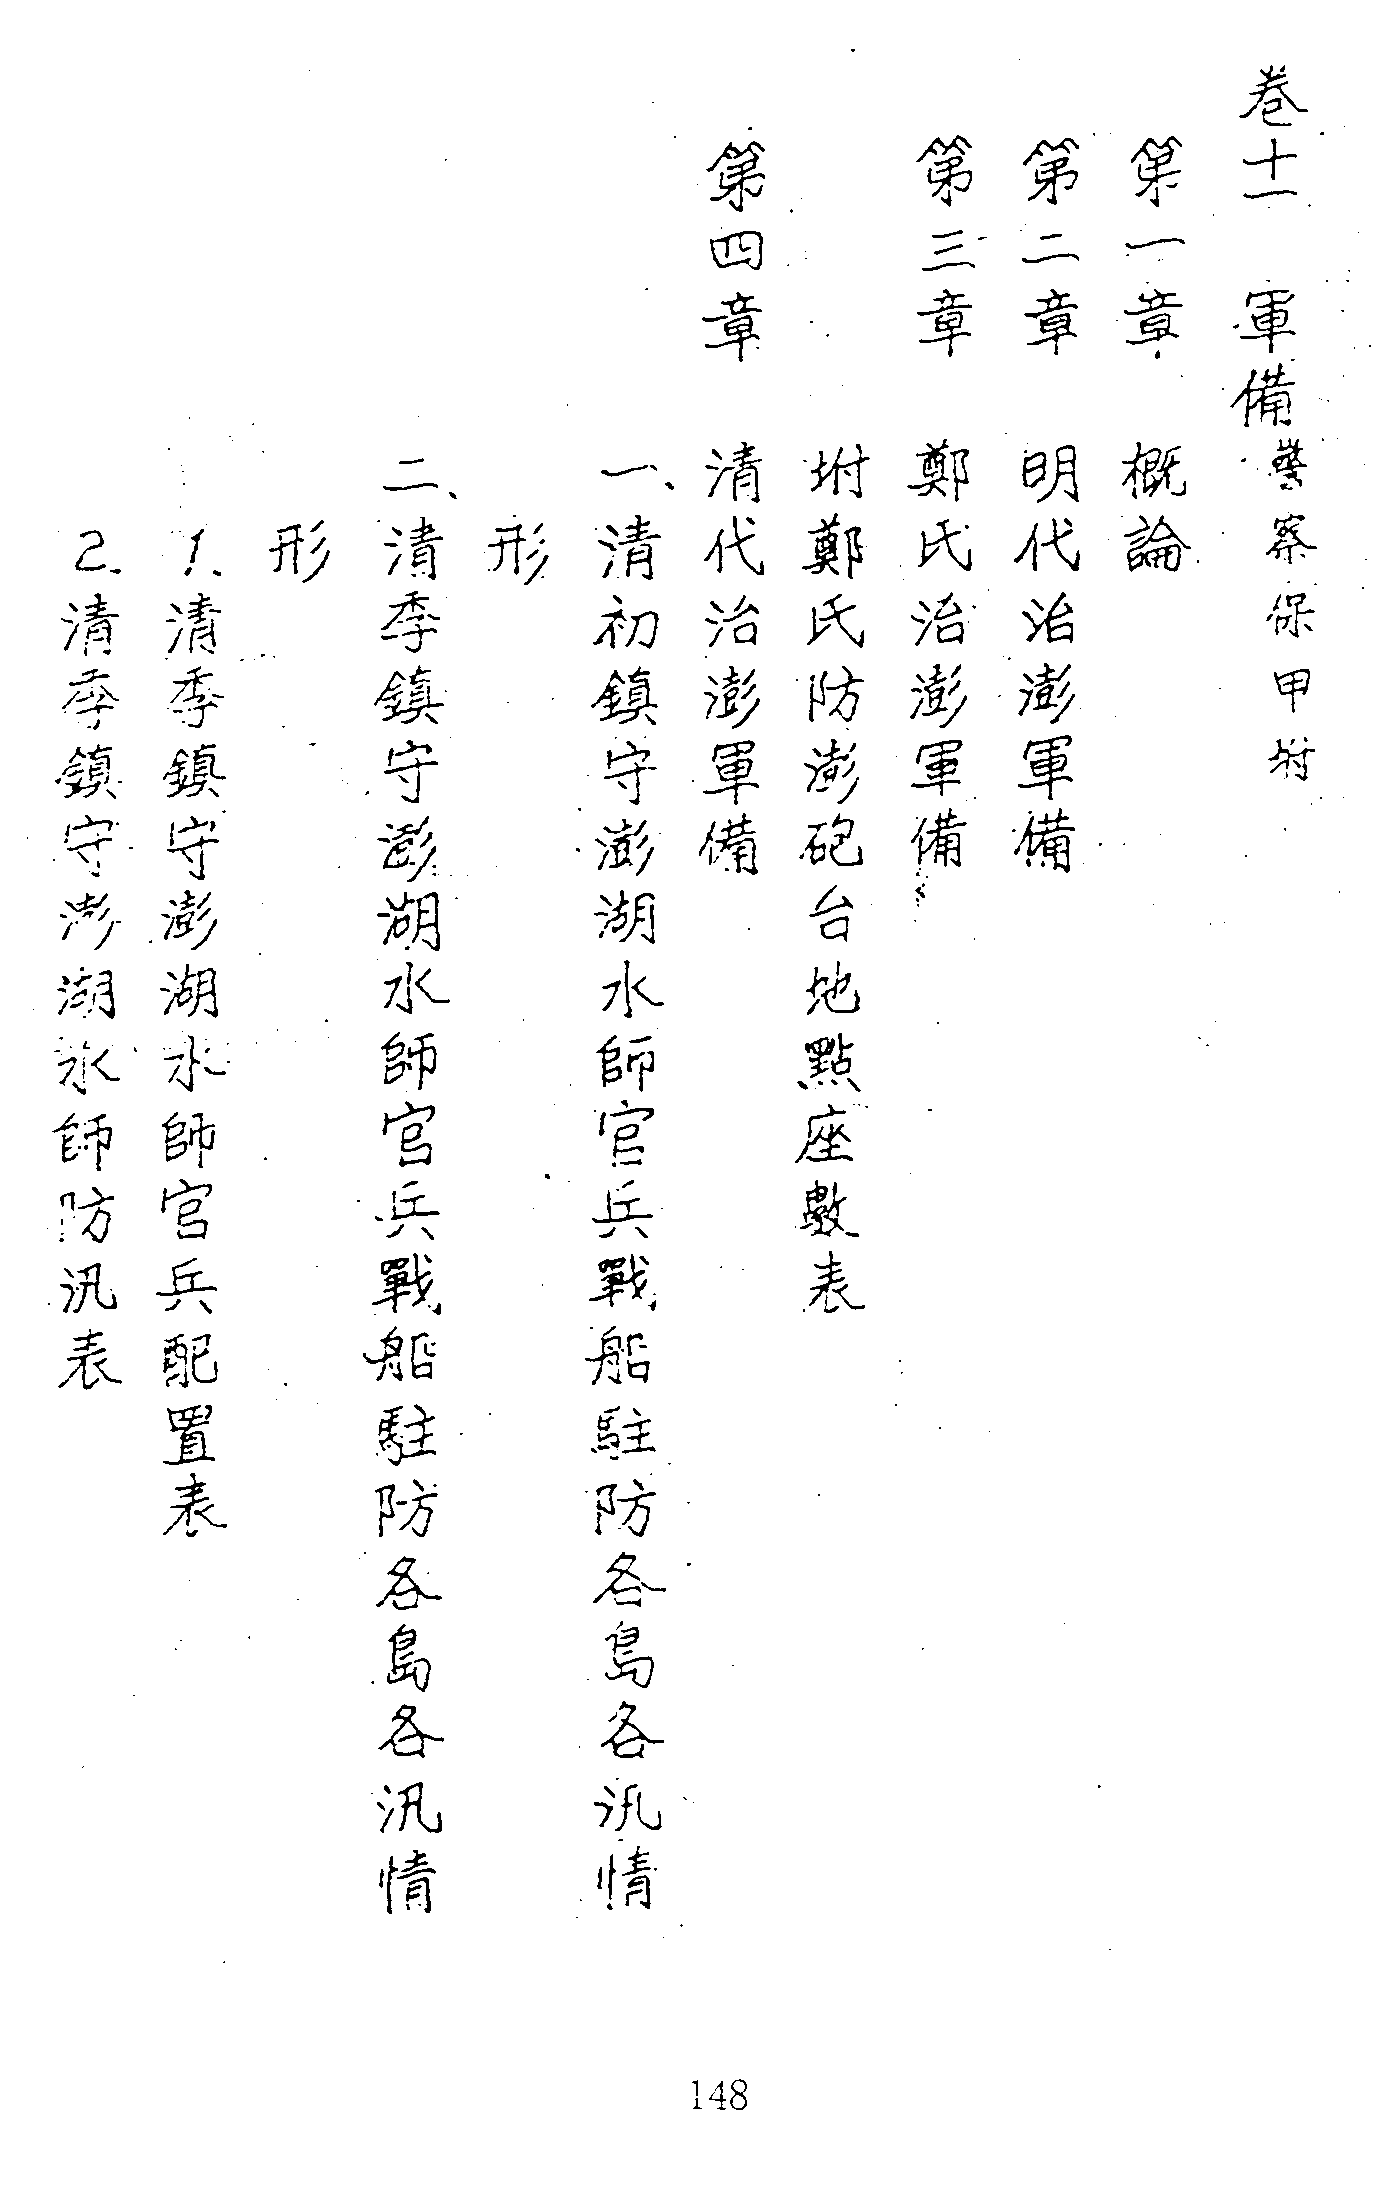 卷十一　軍備警察保甲坿
第一章　概論
第二章　明代治澎軍備
第三章　鄭氏治澎軍備
坿鄭氏防澎砲台地點座數表
第四章　清代治澎軍備
一、清初鎮守澎湖水師官兵戰船駐防各島各汛情
形
二、清季鎮守澎湖水師官兵戰船駐防各島各汛情
形
1.清季鎮守澎湖水師官兵配置表
2.清季鎮守澎湖水師防汛表
148